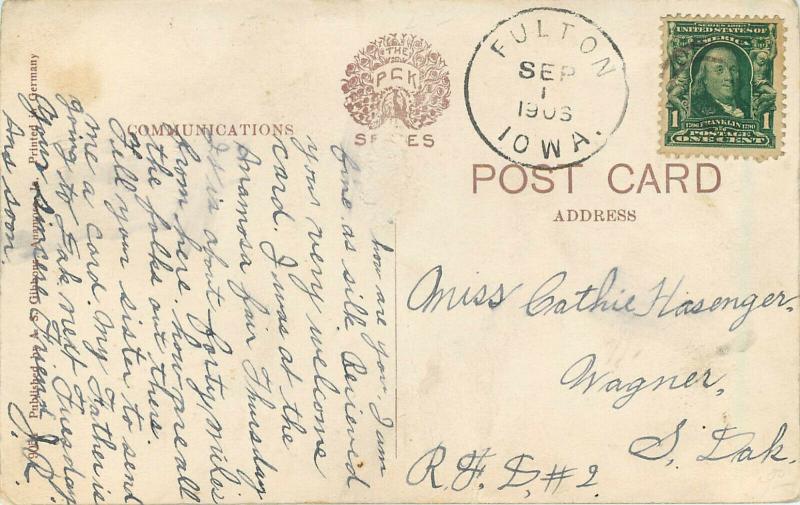 COMMUNICATIONS
THE
PCK
SERIES
FULTON
SEP
1
IOWA.
SERIES 1902
UNITED STATES OF
AMERICA
1
FRANKLIN
1
POSTAGE
ONE CENT
POST CARD
ADDRESS
Miss Cathie Hasenger.
Wagner,
S, Dak.
R.F.D, #2.
how are you I am
fine as silk Recieved
your very welcome
card. I was at the
Anamosa fair Thursday
It is about forty miles
from here. how are all
the folks out there.
Tell your sister to send
me a card. My Father is
going to Dak next Tuesday.
Your sincere Friend J.
Ans soon
Published by A. S. Gibbons, Anamosa, Ia. Printed in Germany